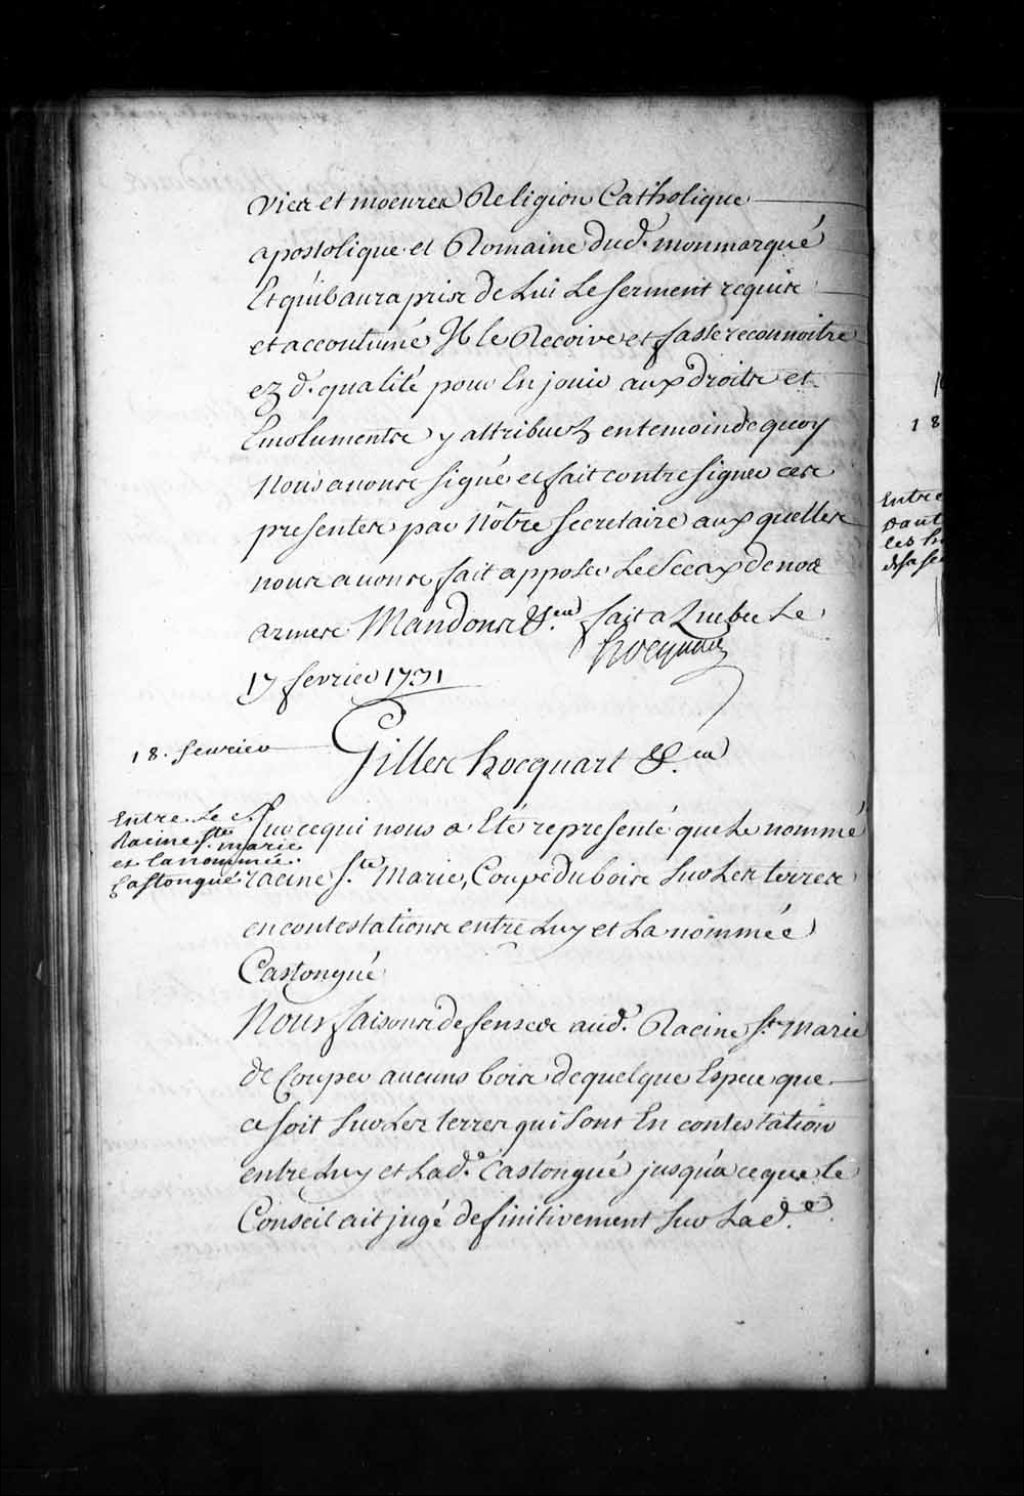 Vies et moeures Religion Catholique
apostolique et Romaine dud. monmarqué
Et qu'ib aura pris de Lui Le serment requis
et accoutumé Il le Recoive et fasse reconnoitre
ez d. qualité pour En jouir aux droits et
Emoluments y attribuez en temoin de quoy
Nous avons signé et fait contresigner ces
presentes par nôtre secretaire aux quelles
nous avons fait apposer Le Sceax de nos
armes Mandons &.ca fait a Quebec Le
hocquart
17 fevrier 1731
18. feuvrier
Gilles hocquart &.ca
Entre Le S.
Racine S.te marie
et la nommée
Castongué.
Sur ce qui nous a Eté representé que Le nommé
racine S.te Marie, Coupe du bois sur Les terres
en contestations entre Luy et La nommée
Castongué
Nous faisons defenses aud. Racine S.te Marie
de Couper aucuns bois de quelque Espece que
ce soit sur Les terres qui sont En contestation
entre Luy et Lad.e Castongué jusqu'a ce que le
Conseil ait jugé definitivement sur Lad.e
18
Entre
les